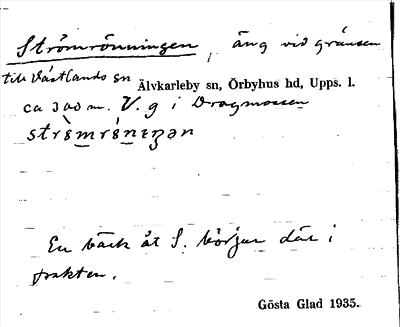 Strömrönningen, äng vid gränsen
till Västlands sn
Älvkarleby sn, Örbyhus hd, Upps. l.
ca 300 m. V. g i Dragmossen
En bäck åt S. börjar där i
trakten.
Gösta Glad 1935.